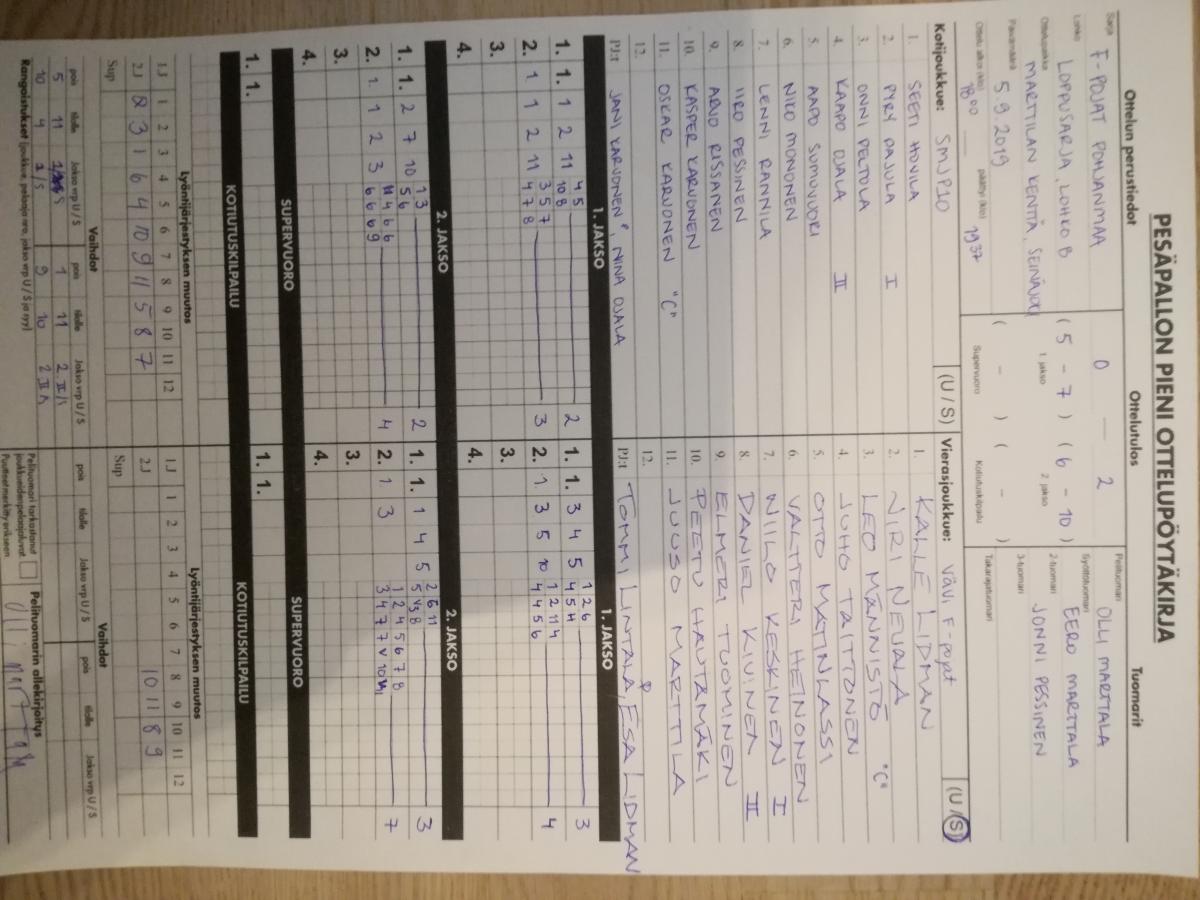 PESÄPALLON PIENI OTTELUPÖYTÄKIRJA
Ottelun perustiedot
Ottelutulos
Tuomarit
Sarja F-POJAT POHJANMAA
Lohko LOPPUSARJA, LOHKO B
Ottelupaikka MARTTILAN KENTTÄ, SEINÄJOKI
Päivämäärä 5.9.2019
Ottelu alkoi (klo) 18 00 päättyi (klo) 19 37
0 — 2
( 5 - 7 ) ( 6 - 10 )
1. jakso 2. jakso
( - ) ( - )
Supervuoro Kotiutuskilpailu
Pelituomari OLLI MARTTALA
Syöttötuomari EERO MARTTALA
2-tuomari JONNI PESSINEN
3-tuomari
Takarajatuomari
Kotijoukkue: SMJP10 (U / S)
1. SEETI HOVILA
2. PYRY PAJULA I
3. ONNI PELTOLA
4. KAAPO OJALA II
5. AAPO SUMUVUORI
6. NIKO MONONEN
7. LENNI RANNILA
8. IIRO PESSINEN
9. ARVO RISSANEN
10. KASPER KARVONEN
11. OSKAR KARVONEN "C"
12.
PJ:t JANI KARVONEN, NINA OJALA
Vierasjoukkue: Vävi F-pojat (U / S)
1. KALLE LIDMAN
2. NIRI NEVALA
3. LEO MÄNNISTÖ "C"
4. JUHO TAITTONEN
5. OTTO MATINLASSI
6. VALTTERI HEINONEN
7. NIILO KESKINEN I
8. DANIEL KIVINEN II
9. ELMERI TUOMINEN
10. PEETU HAUTAMÄKI
11. JUUSO MARTTILA
12.
PJ:t TOMMI LINTALA, ESA LIDMAN
1. JAKSO
1. 1. 1 2 11 10 8 4 5 2
2. 1 1 2 11 4 7 8 3 5 7 3
3.
4.
1. JAKSO
1. 1. 3 4 5 4 5 11 1 2 6 3
2. 1 3 5 10 4 4 5 6 1 2 11 4 4
3.
4.
2. JAKSO
1. 1. 2 7 10 5 6 1 3 2
2. 1. 1 2 3 6 6 6 9 11 4 6 6 4
3.
4.
2. JAKSO
1. 1. 1 4 5 2 6 11 3
2. 1 3 1 2 4 5 6 7 8 7
3.
4.
SUPERVUORO
1. 1.
SUPERVUORO
1. 1.
KOTIUTUSKILPAILU
KOTIUTUSKILPAILU
Lyöntijärjestyksen muutos
1 2 3 4 5 6 7 8 9 10 11 12
1.J
2.J 2 3 1 6 4 10 9 11 5 8 7
Sup
Lyöntijärjestyksen muutos
1 2 3 4 5 6 7 8 9 10 11 12
1.J
2.J 10 11 8 9
Sup
Vaihdot
pois tilalle Jakso vrp U / S pois tilalle Jakso vrp U / S
5 11 1 11 2. II
10 4 9 10 2. II
Vaihdot
pois tilalle Jakso vrp U / S pois tilalle Jakso vrp U / S
Rangaistukset (joukkue, pelaaja nro, jakso vrp U / S ja syy)
Pelituomari tarkastanut joukkueiden pelaajaluvat.
Puutteet merkitty erikseen
Pelituomarin allekirjoitus